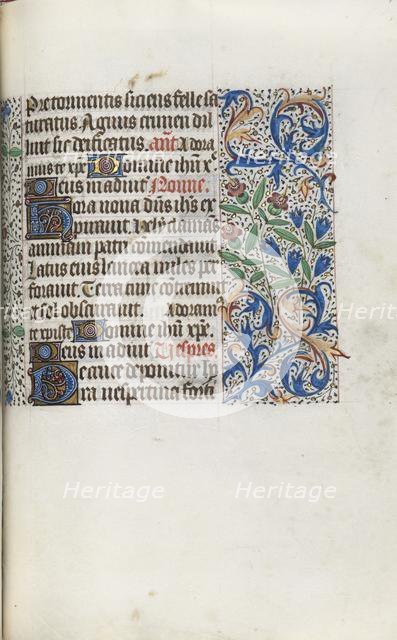 Pre tormentis siciens felle sa
turatus Agnus crimen dil
luit sic deificatus. ant Adora
mus te xpe Domine ihu x̄
Deus in adiut Nonne.
Hora nona dn̄s ihūs ex
piravit Hely clamās
animam patri comendavit
Latus eius lancea miles per
foravit. Terra tunc cōtremuit
et sol obscuravit Adoram
te xpiste Domine ihū xpe.
Deus in adiut Vespres
De cruce deponitur ho
ra vespertina forti
Heritage
Heritage
Heritage
Heritage
Heritage
Heritage